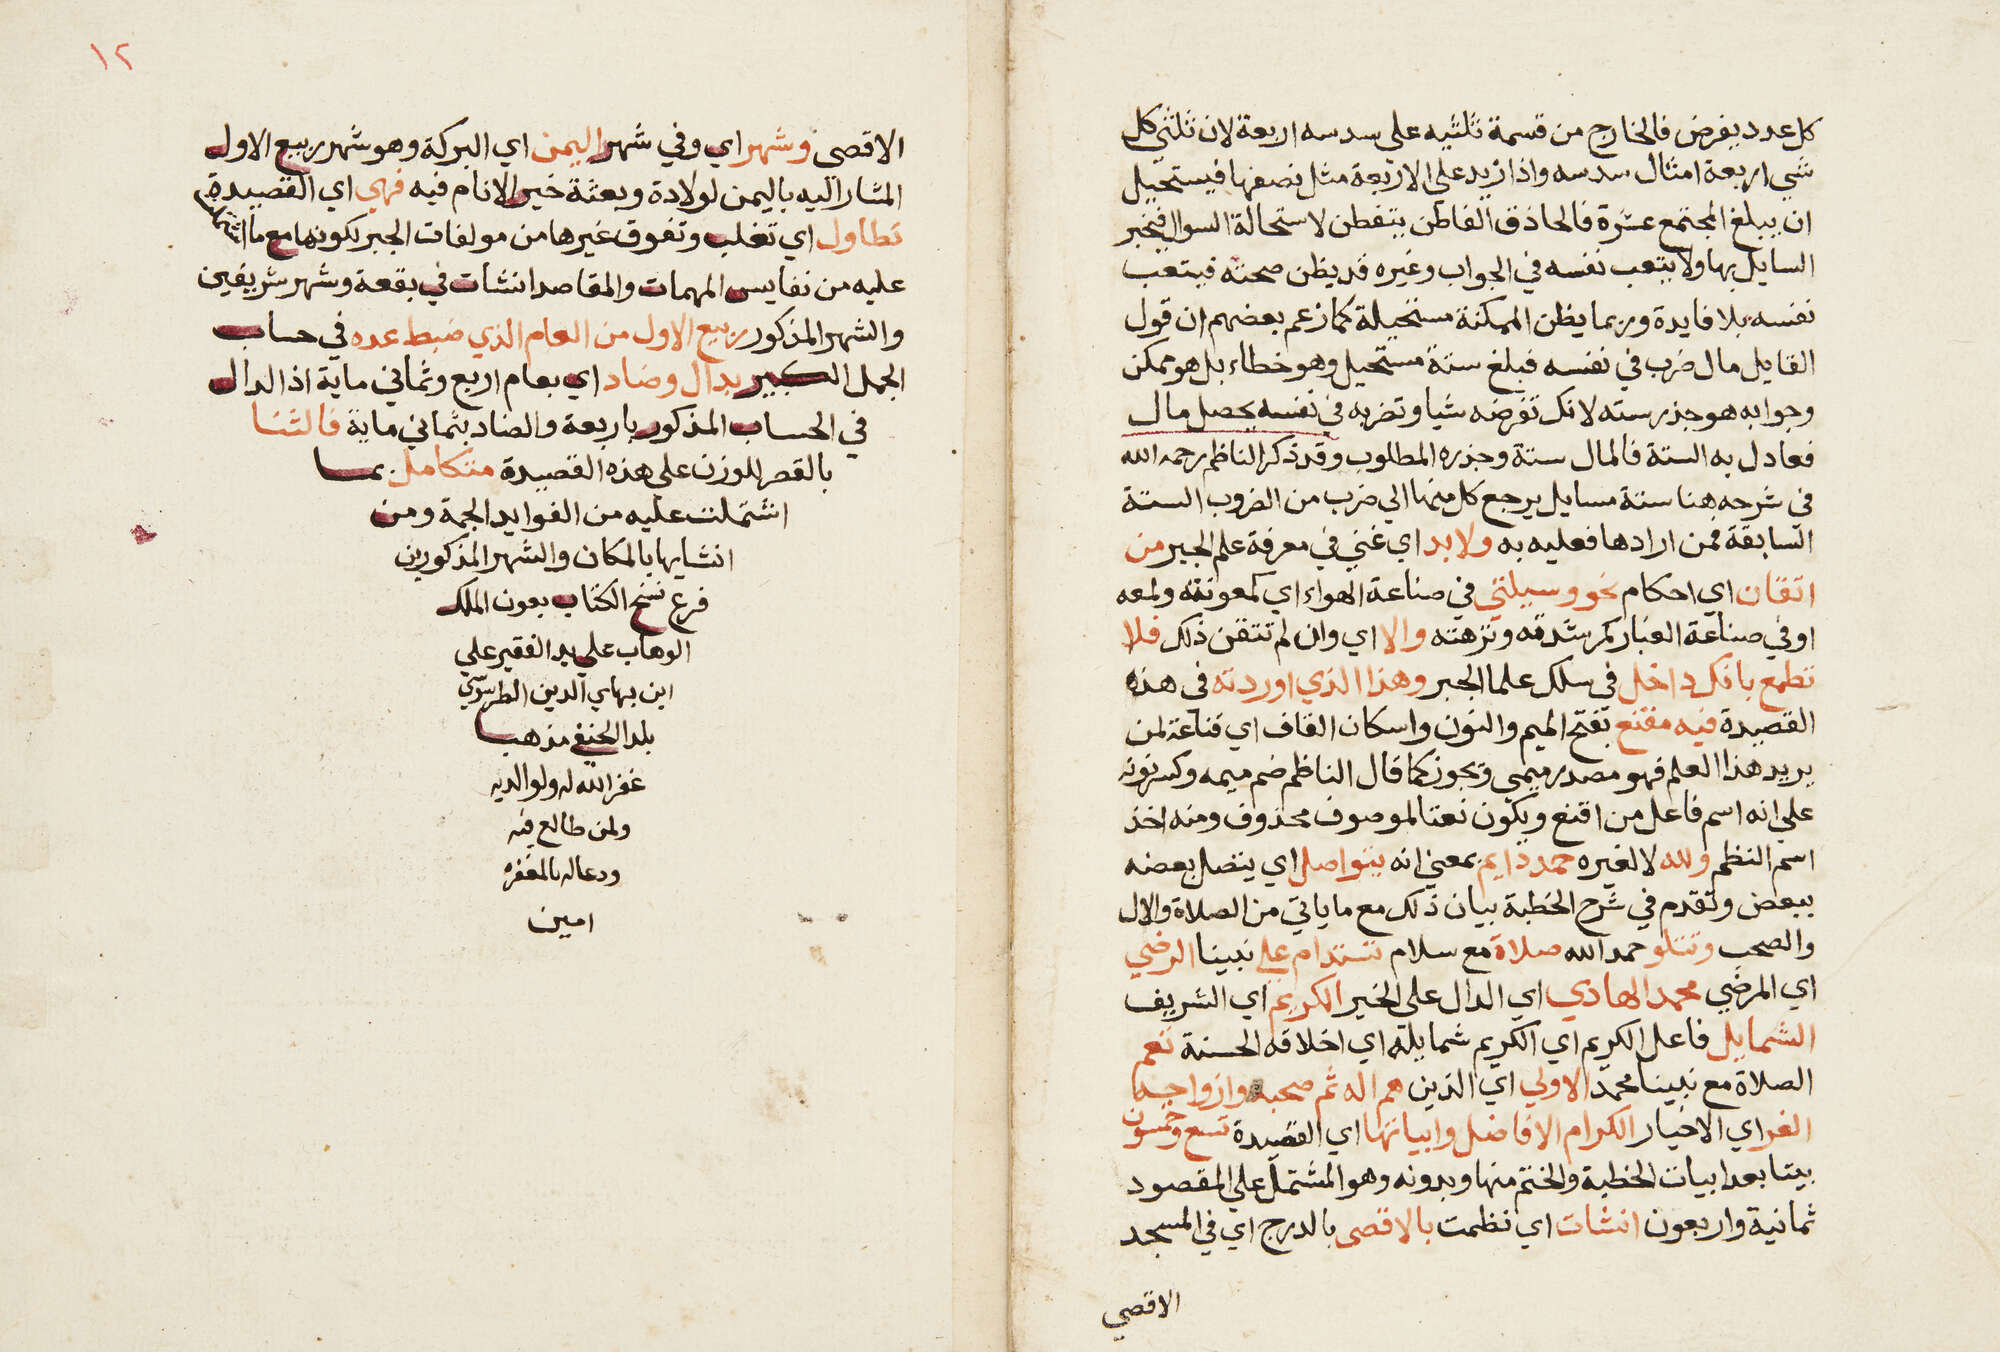 كل عدد يفرض فالخارج من قسمة ثلثيه على سدسه اربعة لان ثلثى كل
شي اربعة امثال سدسه واذا زيد على الاربعة مثل نصفها فيستحيل
ان يبلغ المجتمع عشرة فالحاذق الفاطن يتفطن لاستحالة السوال فيخبر
السايل بها ولا يتعب نفسه في الجواب وغيره قد يظن صحته فيتعب
نفسه بلا فايدة وربما يظن الممكنة مستحيلة كما زعم بعضهم ان قول
القايل مال ضرب في نفسه فبلغ ستة مستحيل وهو خطاء بل هو ممكن
وجوابه هو جذر سته لانك تفرضه شيا وتضربه في نفسه يحصل مال
فعادل به الستة فالمال ستة وجذره المطلوب وقد ذكر الناظم رحمه الله
في شرحه هنا ستة مسايل يرجع كل منها الى ضرب من الضروب الستة
السابقة فمن ارادها فعليه به ولا بد اي غني في معرفة علم الجبر من
اتقان اي احكام نحو وسيلتي في صناعة الهواء اي كمعونته ولمعه
او في صناعة الغبار كمرشدته ونزهته والا اي وان لم تتقن ذلك فلا
تطمع بانك داخل في سلك علما الجبر وهذا الذي اوردته في هذه
القصيدة فيه مقنع بفتح الميم والنون واسكان القاف اي قناعة لمن
يريد هذا العلم فهو مصدر ميمي ويجوز كما قال الناظم ضم ميمه وكسر نونه
على انه اسم فاعل من اقنع ويكون نعتا لموصوف محذوف ومنه اخذ
اسم النظم ولله لا لغيره حمد دايم بمعنى انه يتواصل اي يتصل بعضه
ببعض وتقدم في شرح الخطبة بيان ذلك مع ما ياتي من الصلاة والال
والصحب وتتلو حمد الله صلاة مع سلام تستدام على نبينا الرضي
اي المرضي محمد الهادي اي الدال على الخير الكريم اي الشريف
الشمايل فاعل الكريم اي الكريم شمايله اي اخلاقه الحسنة تعم
الصلاة مع نبينا محمد الاولى اي الذين هم اله ثم صحبه وازواجه
الغر اي الاخيار الكرام الافاضل وابياتها اي القصيدة تسع وخمسون
بيتا بعد ابيات الخطبة والختم منها وبدونه وهو المشتمل على المقصود
ثمانية واربعون انشات اي نظمت بالاقصى بالدرج اي في المسجد
الاقصي
١٢
الاقصى وشهر اي وفي شهر اليمن اي البركة وهو شهر ربيع الاول
المشار اليه باليمن لولادة وبعثة خير الانام فيه فهي اي القصيدة
تطاول اي تغلب وتفوق غيرها من مولفات الجبر لكونها مع ما اشتملت
عليه من نفايس المهمات والمقاصد انشات في بقعة وشهر شريفين
والشهر المذكور ربيع الاول من العام الذي ضبط عده في حساب
الجمل الكبير بدال وضاد اي بعام اربع وثماني ماية اذ الدال
في الحساب المذكور باربعة والضاد بثماني ماية فالثنا
بالقصر للوزن على هذه القصيدة متكامل بما
اشتملت عليه من الفوايد الجمة ومن
انشايها بالمكان والشهر المذكورين
فرغ نسخ الكتاب بعون الملك
الوهاب على يد الفقير علي
ابن بهاي الدين الطرسوسي
بلدا الحنفي مذهبا
غفر الله له ولوالديه
ولمن طالع فيه
ودعا له بالمغفره
امين